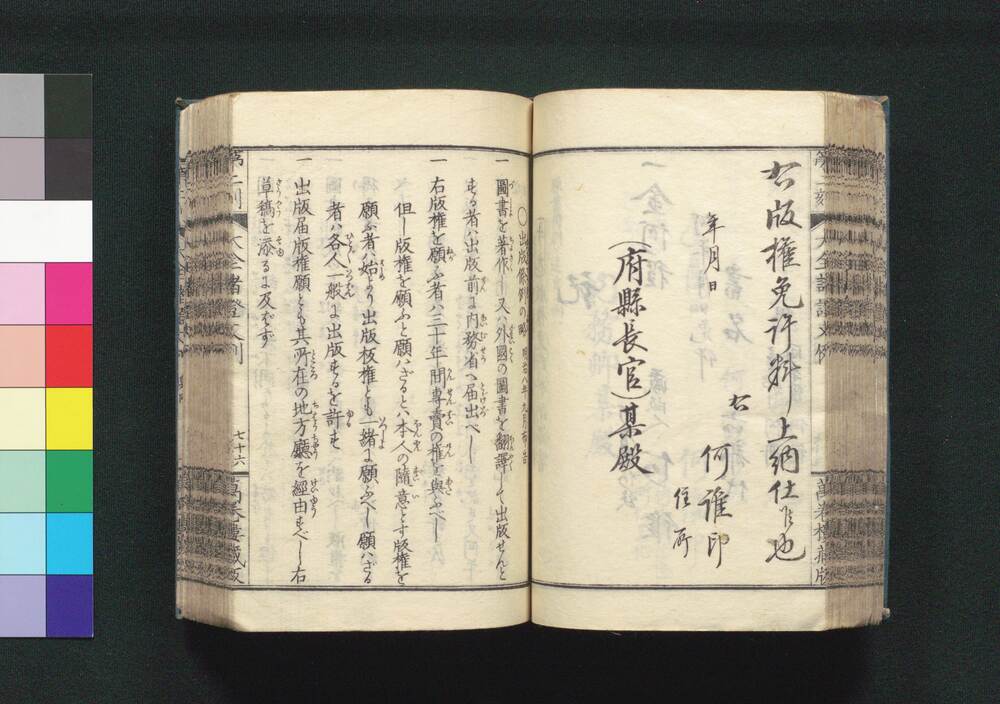 右版權免許料上納仕候也
年月日
右
何誰印
住所
(府縣長官)某殿
〇出版條例の略 明治八年九月布告
一 圖書を著作し又ハ外國の圖書を翻譯して出版せんと
する者ハ出版前に内務省へ届出べし
一 右版權を願ふ者ハ三十年間專賣の權を與ふべし
但し版權を願ふと願ハざるとハ本人の隨意とす版權を
願ふ者ハ始より出版版權とも一緒に願ふべし願ハざる
者ハ各人一般に出版するを許す
一 出版届版權願とも其所在の地方廳を經由すべし右
草稿を添るに及ばず
七十六